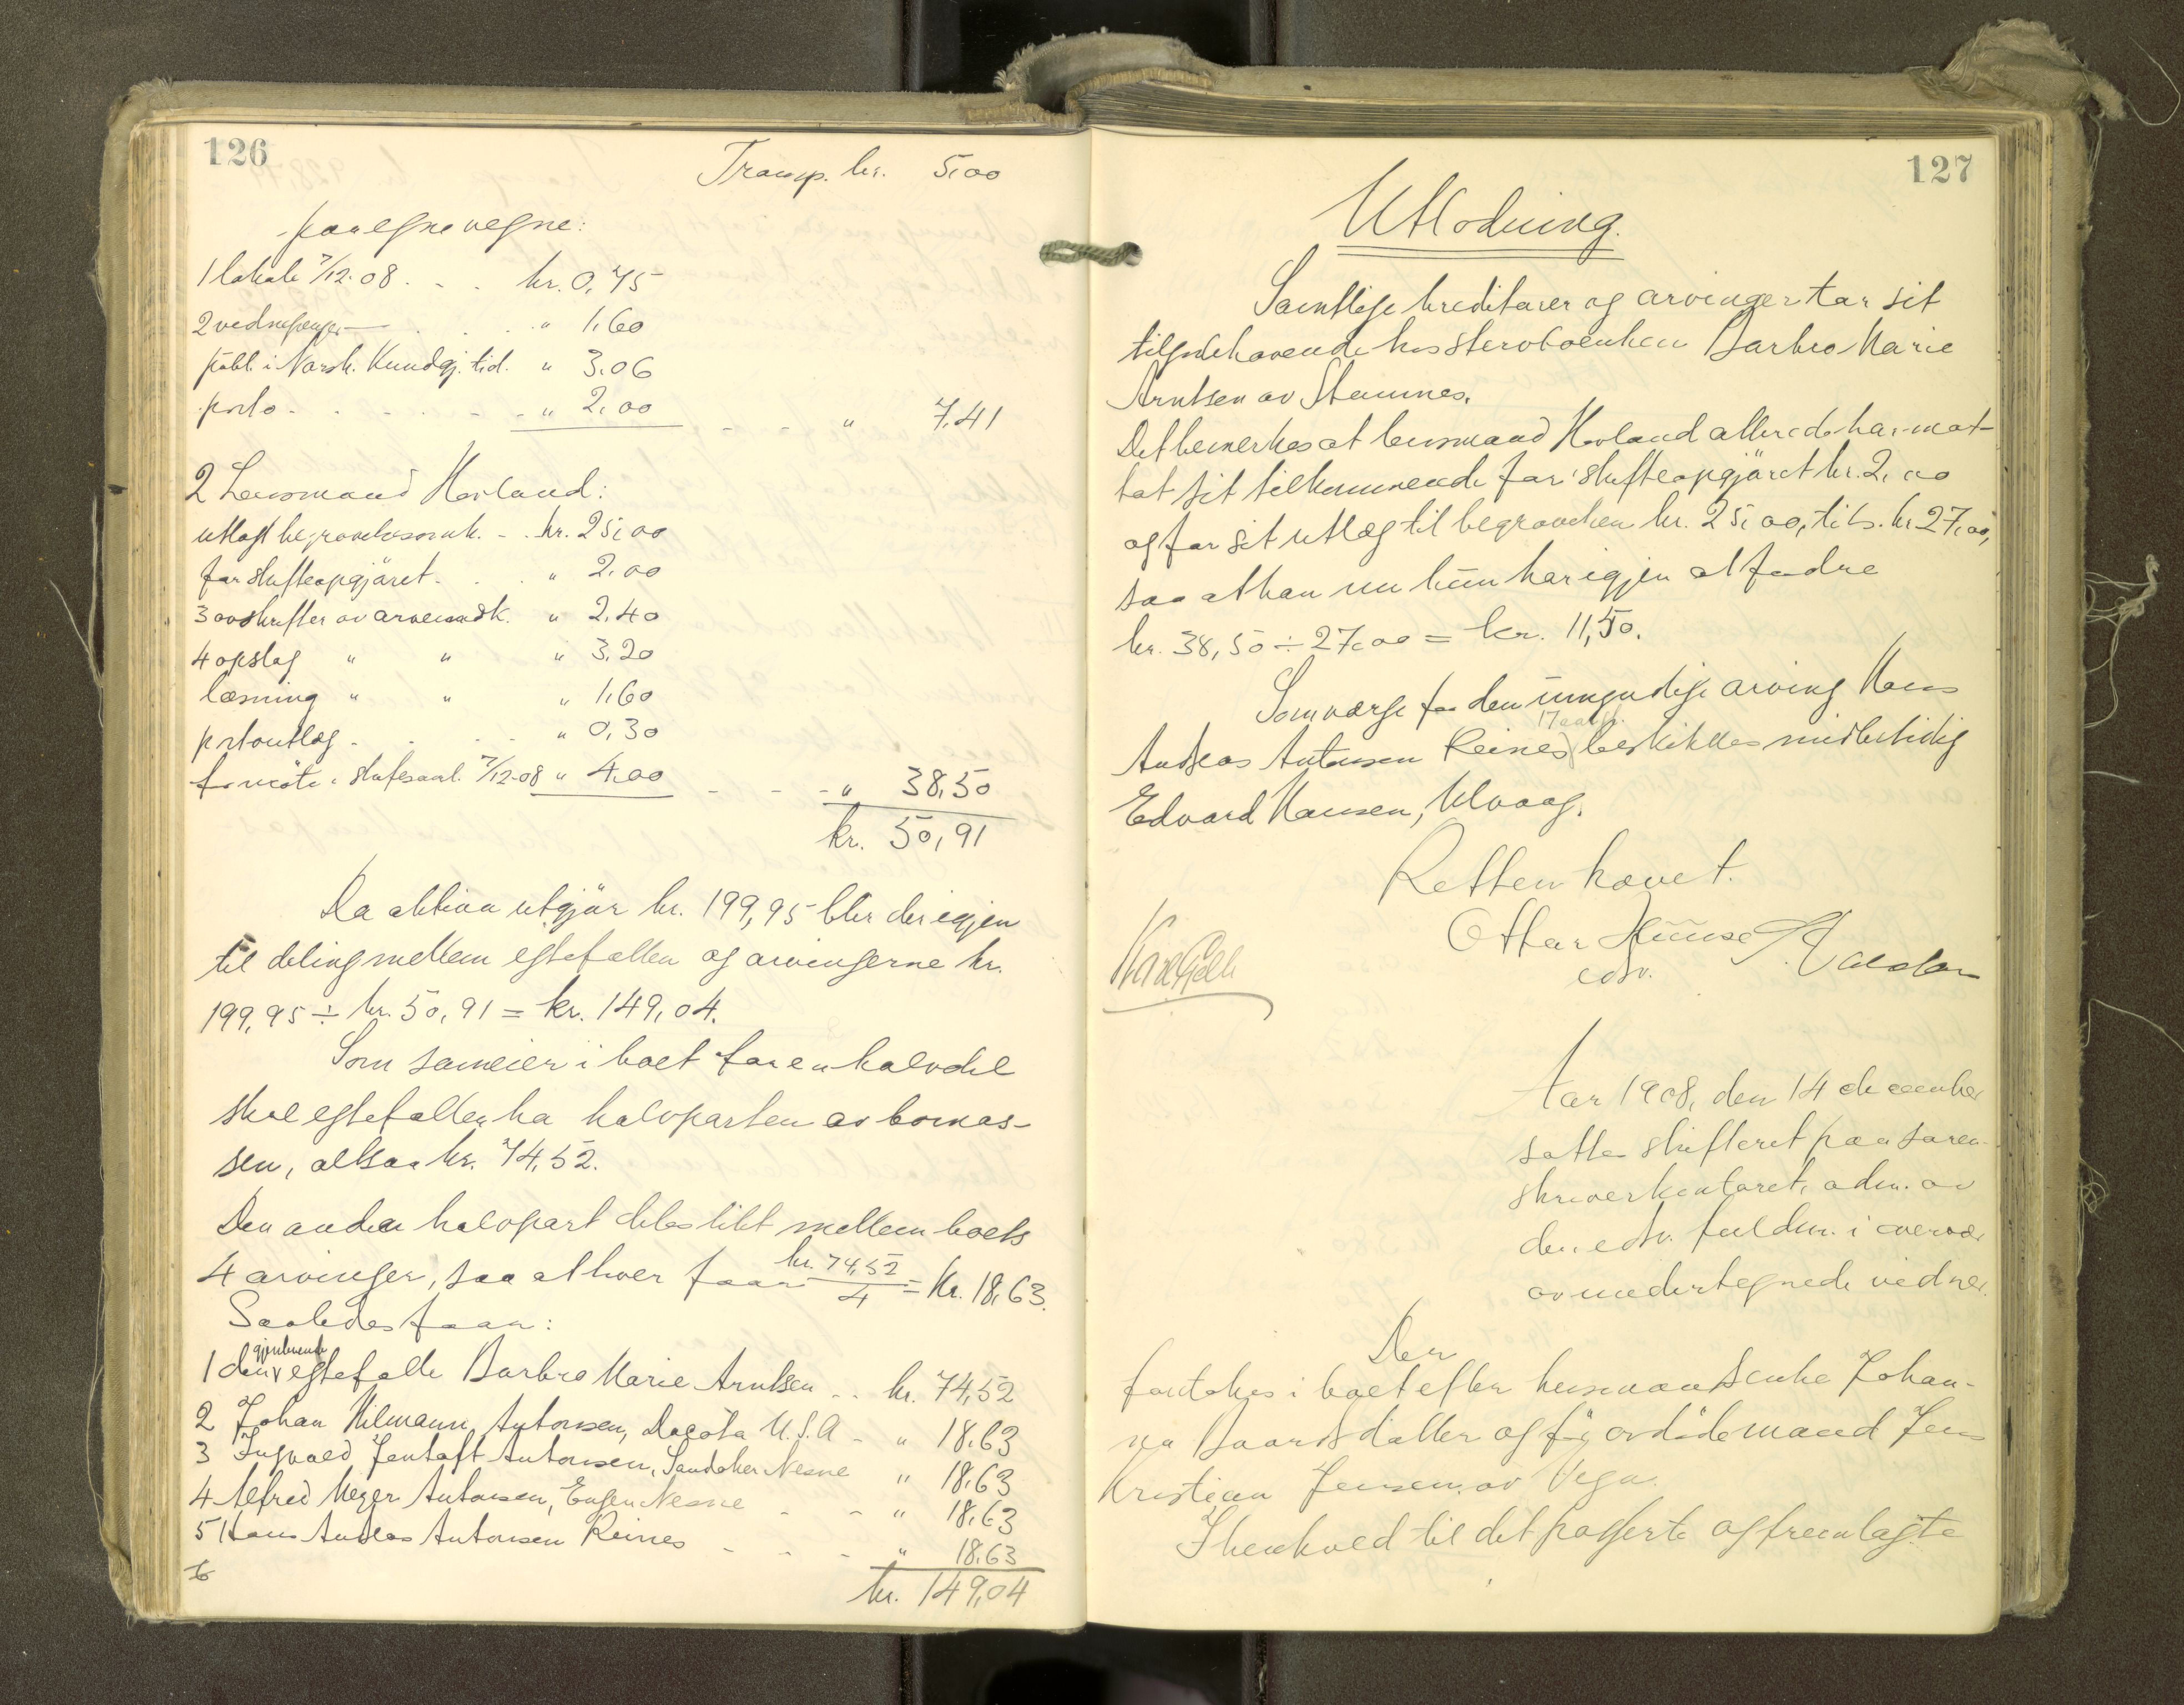 126
Transp. kr. 5,00
paa egne vegne:
1 lokale 7/12-08 . . . kr. 0,75
2 vidnepenger — . . . " 1,60
publ. i Norsk. Kundgj. tid. " 3.06
porto - - - - - " 2,00 - - - " 7,41
2 Lensmand Hovland:
utlagt begravelsesomk. - . kr. 25,00
for skifteopgjøret . . . " 2.00
3 avskrifter av arveindk. " 2,40
4 opslag " " " 3,20
læsning " " " 1,60
portoutlæg - . . . " 0,30
for møte i skiftesaml. 7/12-08 " 4,00 - - - " 38,50
kr. 50,91
Da aktiva utgjør kr. 199,95 blir der igjen
til deling mellem egtefællen og arvingerne kr.
199,95 ÷ kr. 50,91 = kr. 149,04.
Som sameier i boet for en halvdel
skal egtefællen ha halvparten av bomas-
sen, altsaa kr. 74,52.
Den anden halvpart deles likt mellem boets
4 arvinger, saa at hver faar kr. 74,52/4 = kr. 18,63.
Saaledes faar:
1 den gjenlevende egtefælle Barbro Marie Arntsen . . kr. 74,52
2 Johan Hilmann Antonsen, Dacota U.S.A - " 18,63
3 Ingvald Jentoft Antonsen, Sandaker Nesne " 18,63
4 Alfred Meyer Antonsen, Engen Nesne - - " 18,63
5 Hans Andreas Antonsen Reines - - - " 18,63
kr. 149,04
127
Utlodning.
Samtlige kreditorer og arvinger tar sit
tilgodehavende hos sterboenken Barbro Marie
Arntsen av Stamnes.
Det bemerkes at lensmand Hovland allerede har mot-
tat sit tilkommende for skifteopgjøret kr. 2,00
og for sit utlæg til begravelsen kr. 25,00, tils. kr 27,00,
saa at han nu kun har igjen at fordre
kr. 38,50 ÷ 27,00 = kr. 11,50.
Som værge for den umyndige arving Hans
Andreas Antonsen Reines (17 aar gl.) beskikkes midlertidig
Edvard Hansen, Ulvaag.
Retten hævet.
Ottar Huuse
edsv.
Aar 1908, den 14 december
sattes skifteret paa soren-
skriverkontoret, adm. av
den edsv. fuldm. i overvær
av undertegnede vidner.
Der
foretokes i boet efter husmandsenke Johan-
na Baardsdatter og før avdøde mand Jens
Kristian Jensen av Vega.
I henhold til det passerte og fremlagte